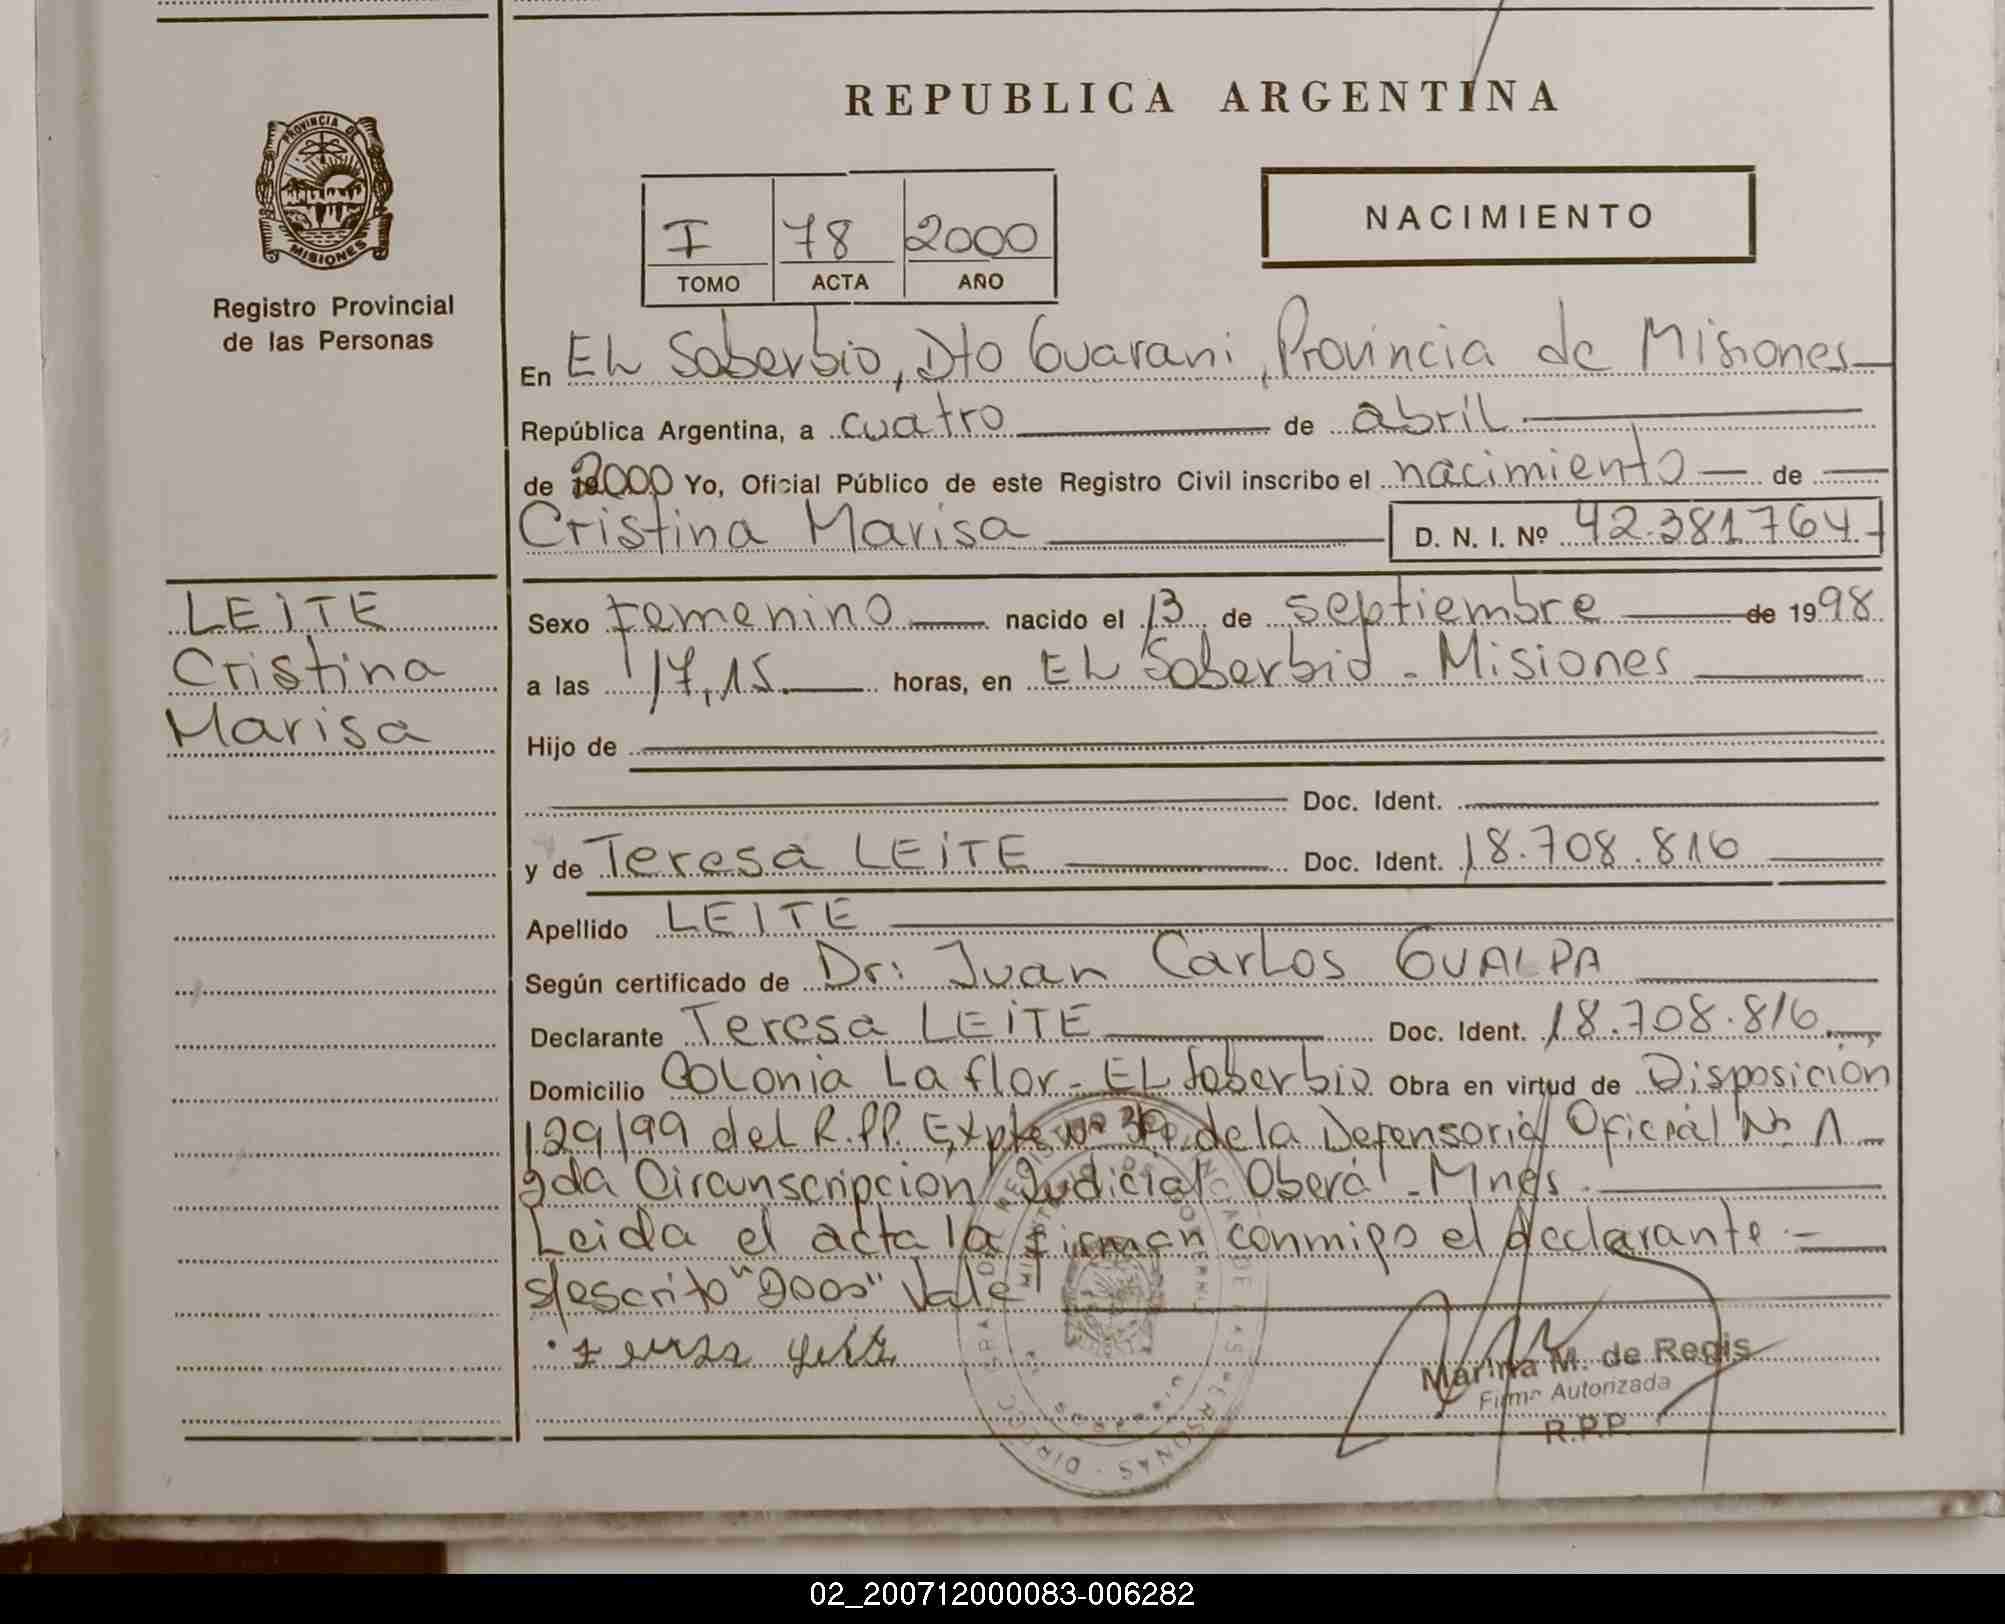 REPUBLICA ARGENTINA
PROVINCIA DE
MISIONES
Registro Provincial
de las Personas
I 78 2000
TOMO ACTA AÑO
NACIMIENTO
En EL Soberbio, Dto Guarani, Provincia de Misiones
República Argentina, a cuatro de abril
de 2000 Yo, Oficial Público de este Registro Civil inscribo el nacimiento de
Cristina Marisa D. N. I. Nº 42.381764
LEITE
Cristina
Marisa
Sexo Femenino nacido el 13 de septiembre de 1998
a las 17,15 horas, en EL Soberbio - Misiones
Hijo de
Doc. Ident.
y de Teresa LEITE Doc. Ident. 18.708.816
Apellido LEITE
Según certificado de Dr: Juan Carlos GUALPA
Declarante Teresa LEITE Doc. Ident. 18.708.816
Domicilio Colonia La flor - EL Soberbio Obra en virtud de Disposición
129/99 del R.PP. Expte nº de la Defensoria Oficial Nº 1
2da Circunscripcion Judicial Oberá - Mnes.
Leida el acta la firman conmigo el declarante.
s/escrito "2000" Vale
Marina M. de Regis
Firma Autorizada
R.P.P.
02_200712000083-006282